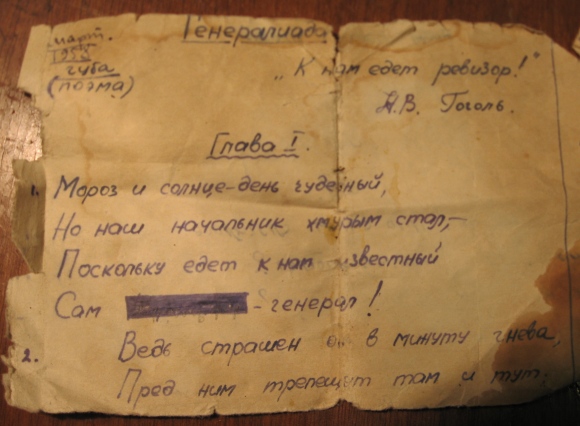 Генералиада
март.
1953
губа
(поэма)
„К нам едет ревизор!"
Н.В. Гоголь.
Глава I.
1. Мороз и солнце-день чудесный,
Но наш начальник хмурым стал,-
Поскольку едет к нам известный
Сам - генерал!
2. Ведь страшен он в минуту гнева,
Пред ним трепещут там и тут.